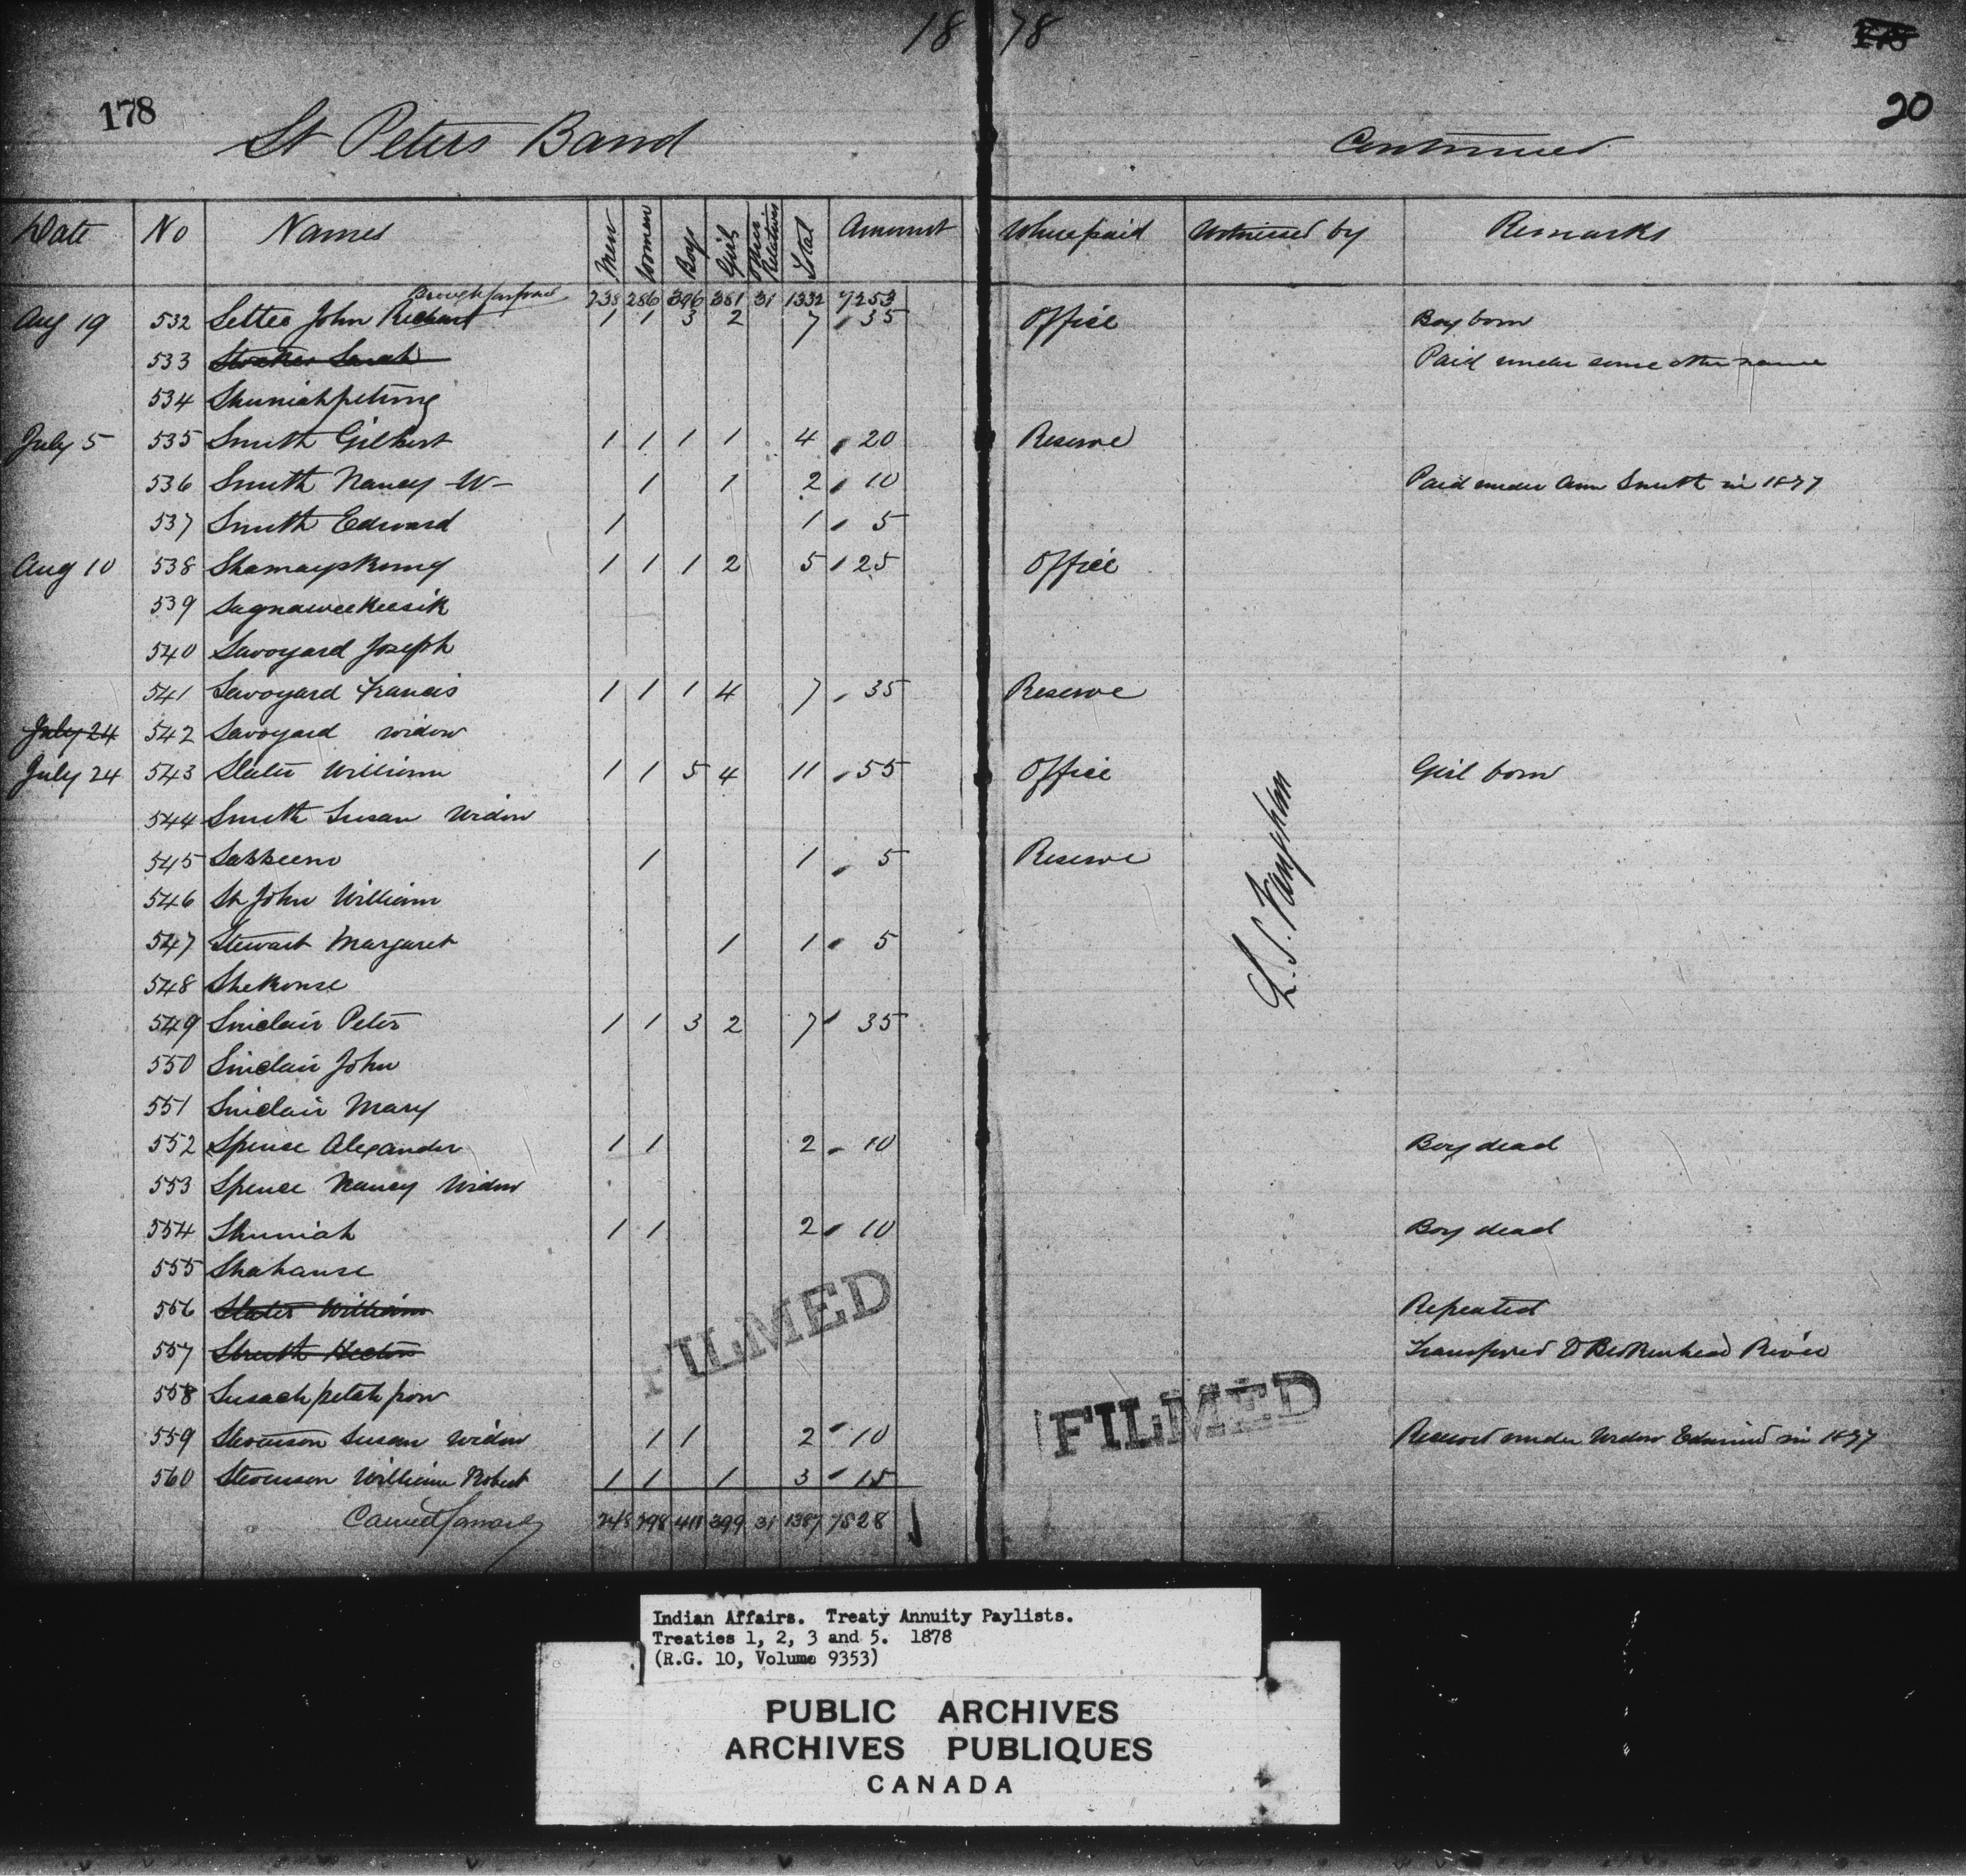 18 78
178
20
St Peters Band
Continued
Date No Names Men Women Boys Girls Other Relatives Total Amount Where paid Witnessed by Remarks
Brought forward 238 286 396 381 31 1332 7253
Aug 19 532 Settee John Richard 1 1 3 2 7 35 Office Boy born
533 Sarah Paid under some other name
534
July 5 535 Smith Gilbert 1 1 1 1 4 20 Reserve
536 Smith Nancy -W- 1 1 2 10 Paid under Ann Smith in 1877
537 Smith Edward 1 1 5
Aug 10 538 1 1 1 2 5 25 Office
539
540 Savoyard Joseph
541 Savoyard Francis 1 1 1 4 7 35 Reserve
July 24 542 Savoyard widow
July 24 543 Slater William 1 1 5 4 11 55 Office Girl born
544 Smith Susan Widow
545 1 1 5 Reserve
546 St John William
547 Stewart Margaret 1 1 5
548 Shekouse
549 Sinclair Peter 1 1 3 2 7 35
550 Sinclair John
551 Sinclair Mary
552 Spence Alexander 1 1 2 10 Boy dead
553 Spence Nancy Widow
554 Shuniah 1 1 2 10 Boy dead
555 Shahause
556 Slater William Repeated
557 Transferred to Brokenhead River
558
559 Stevenson Susan widow 1 1 2 10 Received under Widow Edmund in 1877
560 Stevenson William Robert 1 1 1 3 15
Carried forward 248 298 411 399 31 1387 7528
FILMED
FILMED
Indian Affairs. Treaty Annuity Paylists.
Treaties 1, 2, 3 and 5. 1878
(R.G. 10, Volume 9353)
PUBLIC ARCHIVES
ARCHIVES PUBLIQUES
CANADA